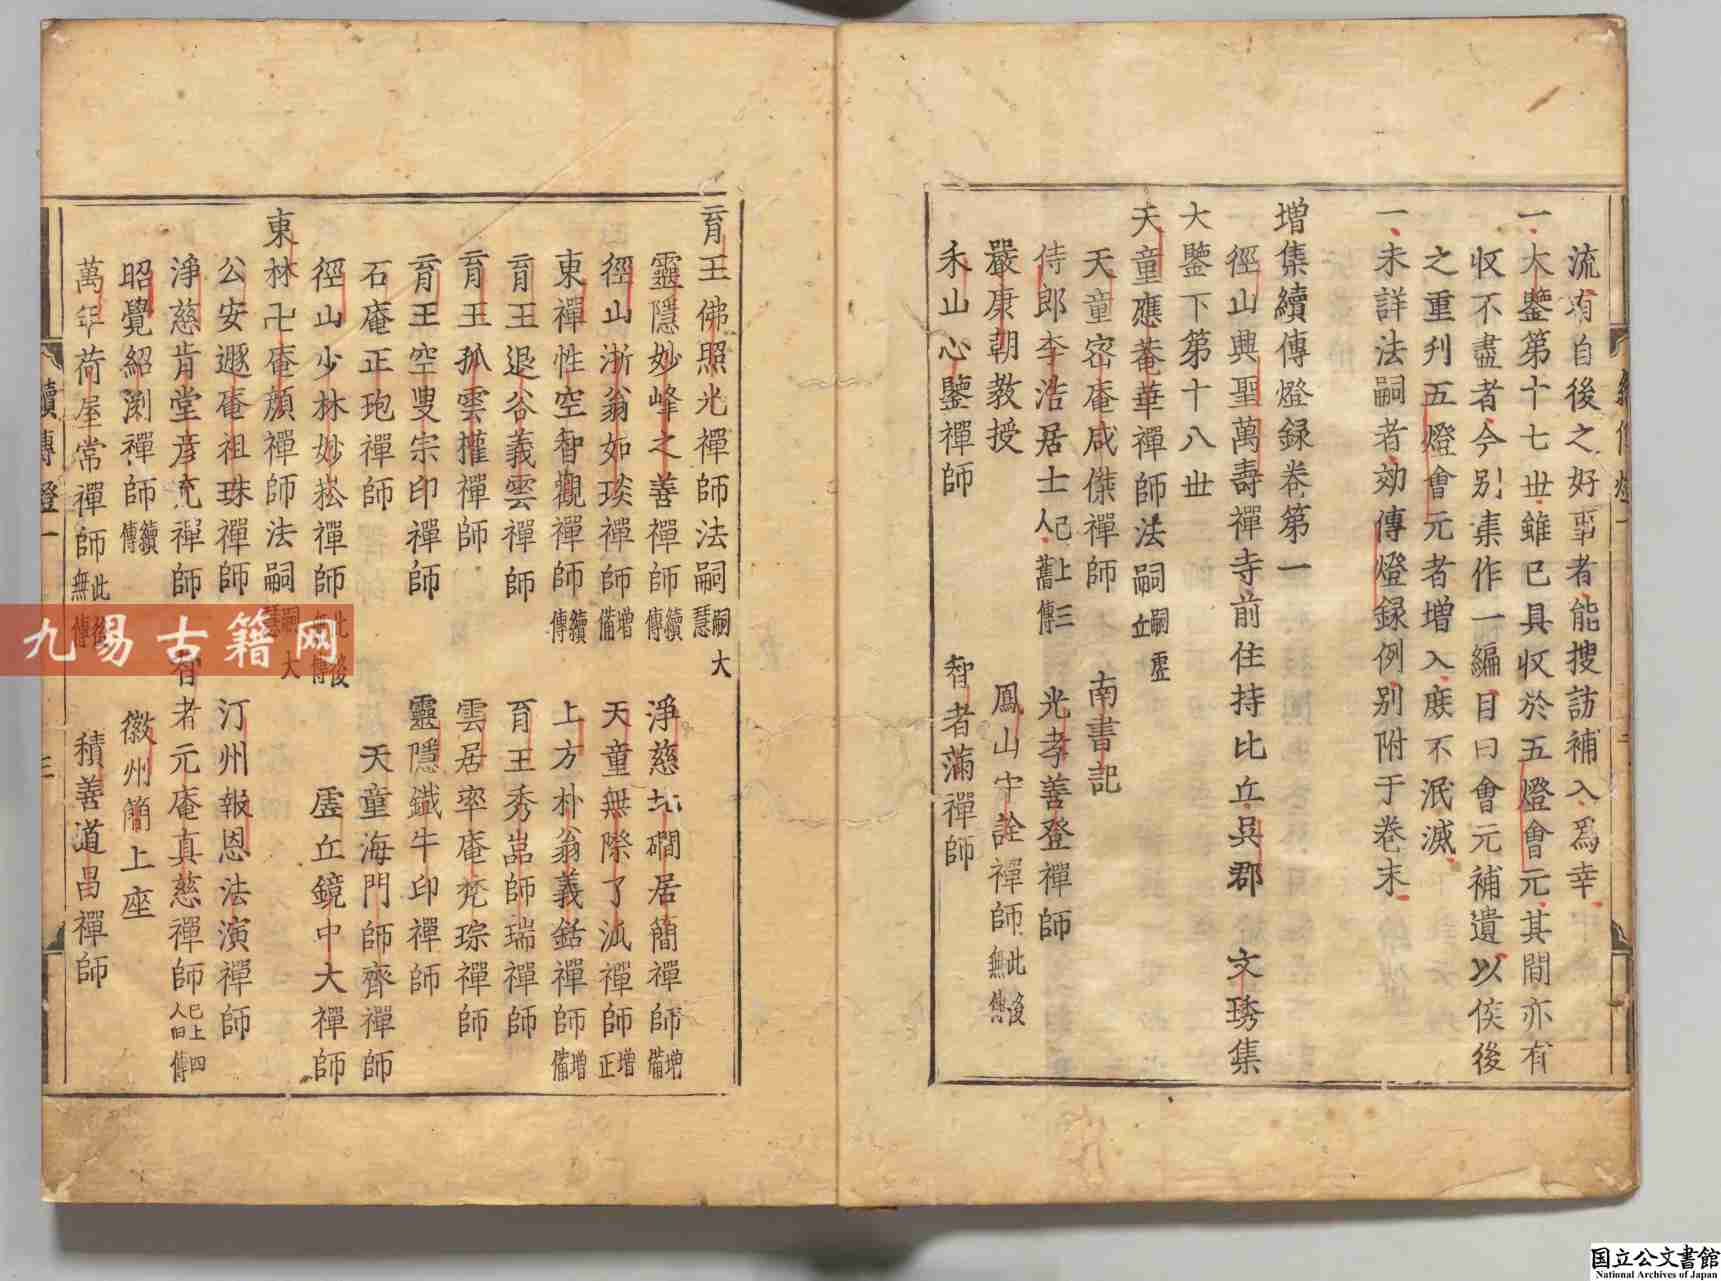 流有自後之好事者能搜訪補入爲幸
一大鑒第十七世雖已具收於五燈會元其間亦有
收不盡者今别集作一編目曰會元補遺以俟後
之重刋五燈會元者增入庻不泯滅
一未詳法嗣者効傳燈録例别附于巻末
增集續傳燈録卷第一
徑山興聖萬壽禪寺前住持比丘呉郡 文琇集
大鑒下第十八世
天童應菴華禪師法嗣嗣虎丘
天童密庵咸傑禪師 南書記
侍郎李浩居士已上三人舊傳 光孝善登禪師
嚴康朝教授 鳳山守詮禪師此後無傳
禾山心鑒禪師 智者滿禪師
育王佛照光禪師法嗣嗣大慧
靈隱妙峰之善禪師續傳 淨慈北磵居簡禪師增備
徑山浙翁如琰禪師增備 天童無際了派禪師增正
東禪性空智觀禪師續傳 上方朴翁義銛禪師增備
育王退谷義雲禪師 育王秀嵓師瑞禪師
育王孤雲權禪師 雲居率庵梵琮禪師
育王空叟宗印禪師 靈隱鐵牛印禪師
石庵正玸禪師 天童海門師齊禪師
徑山少林妙崧禪師此後傳 虎丘鏡中大禪師
東林卍庵顔禪師法嗣嗣大慧
公安遯庵祖珠禪師 汀州報恩法演禪師
淨慈肯堂彦充禪師 智者元庵真慈禪師已上四人旧傳
昭覺紹渕禪師續傳 徽州簡上座
萬年荷屋常禪師此後無傳 積善道昌禪師
續傳燈一
三
九易古籍网
国立公文書館
National Archives of Japan